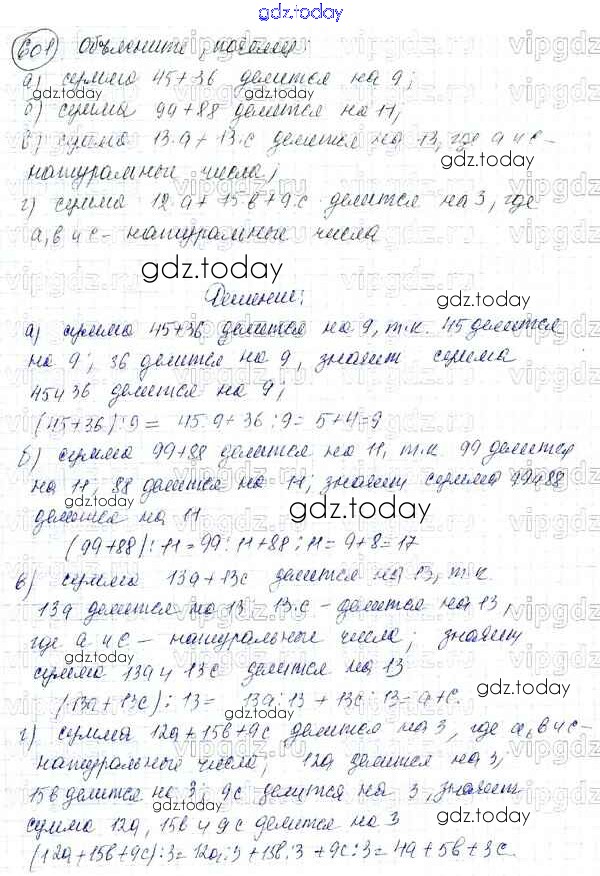 gdz.today
601) Объясните, почему:
а) сумма 45+36 делится на 9;
б) сумма 99+88 делится на 11;
в) сумма 13·а+13·с делится на 13, где а и с –
натуральные числа;
г) сумма 12·а+15в+9·с делится на 3, где
а, в и с – натуральные числа
gdz.today
Решение:
а) сумма 45+36 делится на 9, т.к. 45 делится
на 9; 36 делится на 9, значит сумма
45 и 36 делится на 9;
(45+36):9 = 45:9+36:9=5+4=9
б) сумма 99+88 делится на 11, т.к. 99 делится
на 11, 88 делится на 11; значит сумма 99 и 88
делится на 11
(99+88):11=99:11+88:11=9+8=17
в) сумма 13а+13с делится на 13, т.к.
13а делится на 13, 13·с – делится на 13,
где а и с – натуральные числа; значит
сумма 13а и 13с делится на 13
(13а+13с):13= 13а:13+13с:13=а+с.
г) сумма 12а+15в+9с делится на 3, где а, в и с –
натуральные числа, 12а делится на 3,
15в делится на 3; 9с делится на 3, значит
сумма 12а, 15в и 9с делится на 3
(12а+15в+9с):3=12а:3+15в:3+9с:3=4а+5в+3с.